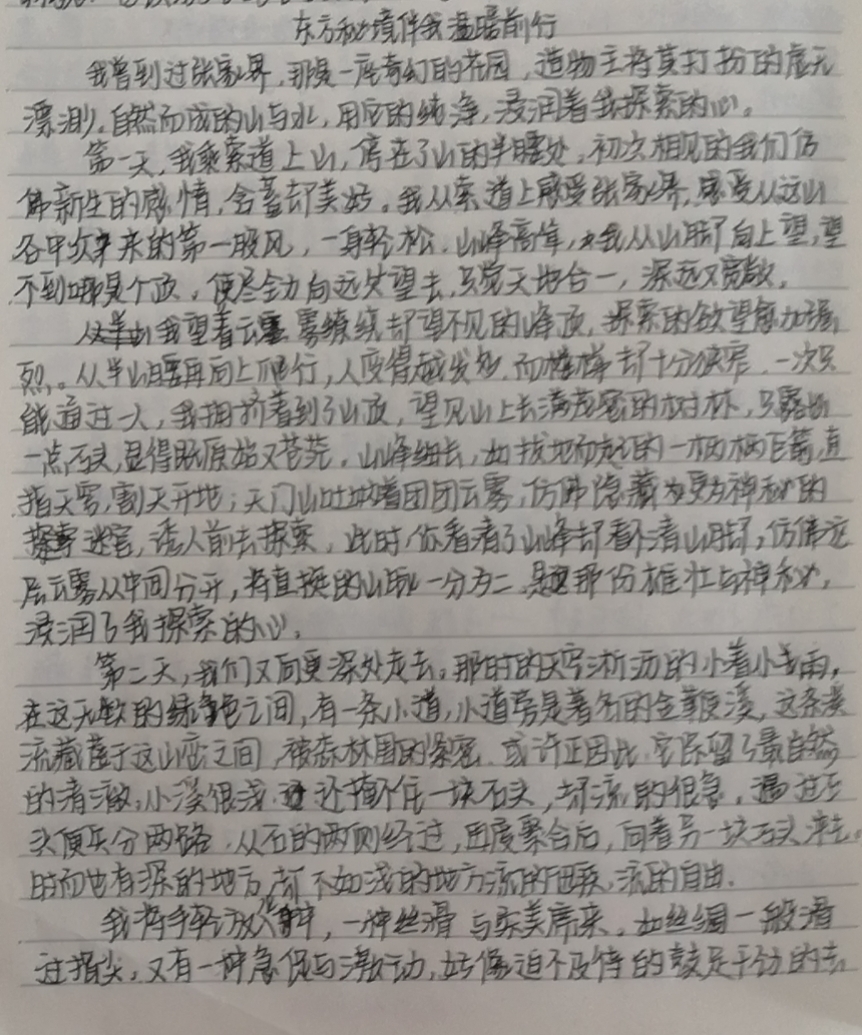 东方秘境伴我温暖前行
我曾到过张家界,那是一座奇幻的花园,造物主将其打扮的虚无
漂渺。自然而成的山与水,用它的纯净,浸润着我探索的心。
第一天,我乘索道上山,停在了山的半腰处,初次相见的我们仿
佛新生的感情,含蓄却美好。我从索道上感受张家界,感受从这山
谷中吹来的第一股风,一身轻松。山峰高耸,我从山脚向上望,望
不到哪是个顶。使尽全力向远处望去,只觉天地合一,深远又宽敞。
我望着云雾缭绕却望不见的峰顶,探索的欲望愈加强
烈。从半山腰再向上爬行,人变得越发少,而楼梯却十分狭窄,一次只
能通过一人,我拥挤着到了山顶,望见山上长满茂密的树林,只露出
一点石头,显得既原始又苍茫。山峰细长,如拔地而起的一柄柄巨剑,直
指天穹,割天开地;天门山吐纳着团团云雾,仿佛隐藏为更为神秘的
迷宫,诱人前去探索。此时,你看清了山峰却看不清山脚,仿佛这
层云雾从中间分开,将直挺的山一分为二,是那份雄壮与神秘,
浸润了我探索的心。
第二天,我们又向更深处走去。那时的天穹淅沥的小着小雨,
在这无数的绿色之间,有一条小道,小道旁是著名的金鞭溪,这条溪
流藏匿于这山峦之间,被森林围的紧密,或许正因此,它保留了最自然
的清澈,小溪很浅,还挡不住一块石头,却流的很急,遇过石
头便兵分两路,从石的两侧经过,再度聚合后,向着另一块石头冲去。
时而也有深的地方,都不如浅的地方流的畅快,流的自由。
我将手轻放入溪中,一种丝滑与柔美席来,如丝绸一般滑
过指尖,又有一种急促与激动,好像迫不及待的鼓足干劲的去